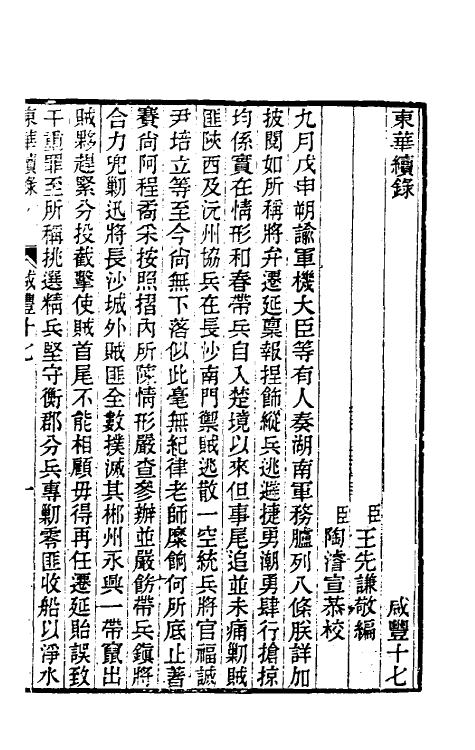 東華續錄　咸豐十七
臣王先謙敬編
臣陶濬宣恭校
九月戊申朔諭軍機大臣等有人奏湖南軍務臚列八條朕詳加
披閱如所稱將弁遷延禀報捏飾縱兵逃避捷勇潮勇肆行搶掠
均係實在情形和春帶兵自入楚境以來但事尾追並未痛勦賊
匪陝西及沅州協兵在長沙南門禦賊逃散一空統兵將官福誠
尹培立等至今尙無下落似此毫無紀律老師糜餉何所底止著
賽尙阿程矞采按照摺內所陳情形嚴查參辦並嚴飭帶兵鎭將
合力兜勦迅將長沙城外賊匪全數撲滅其郴州永興一帶竄出
賊夥趕緊分投截擊使賊首尾不能相顧毋得再任遷延貽誤致
干重罪至所稱挑選精兵堅守衡郡分兵專勦零匪收船以淨水
東華續錄　咸豐十七　一